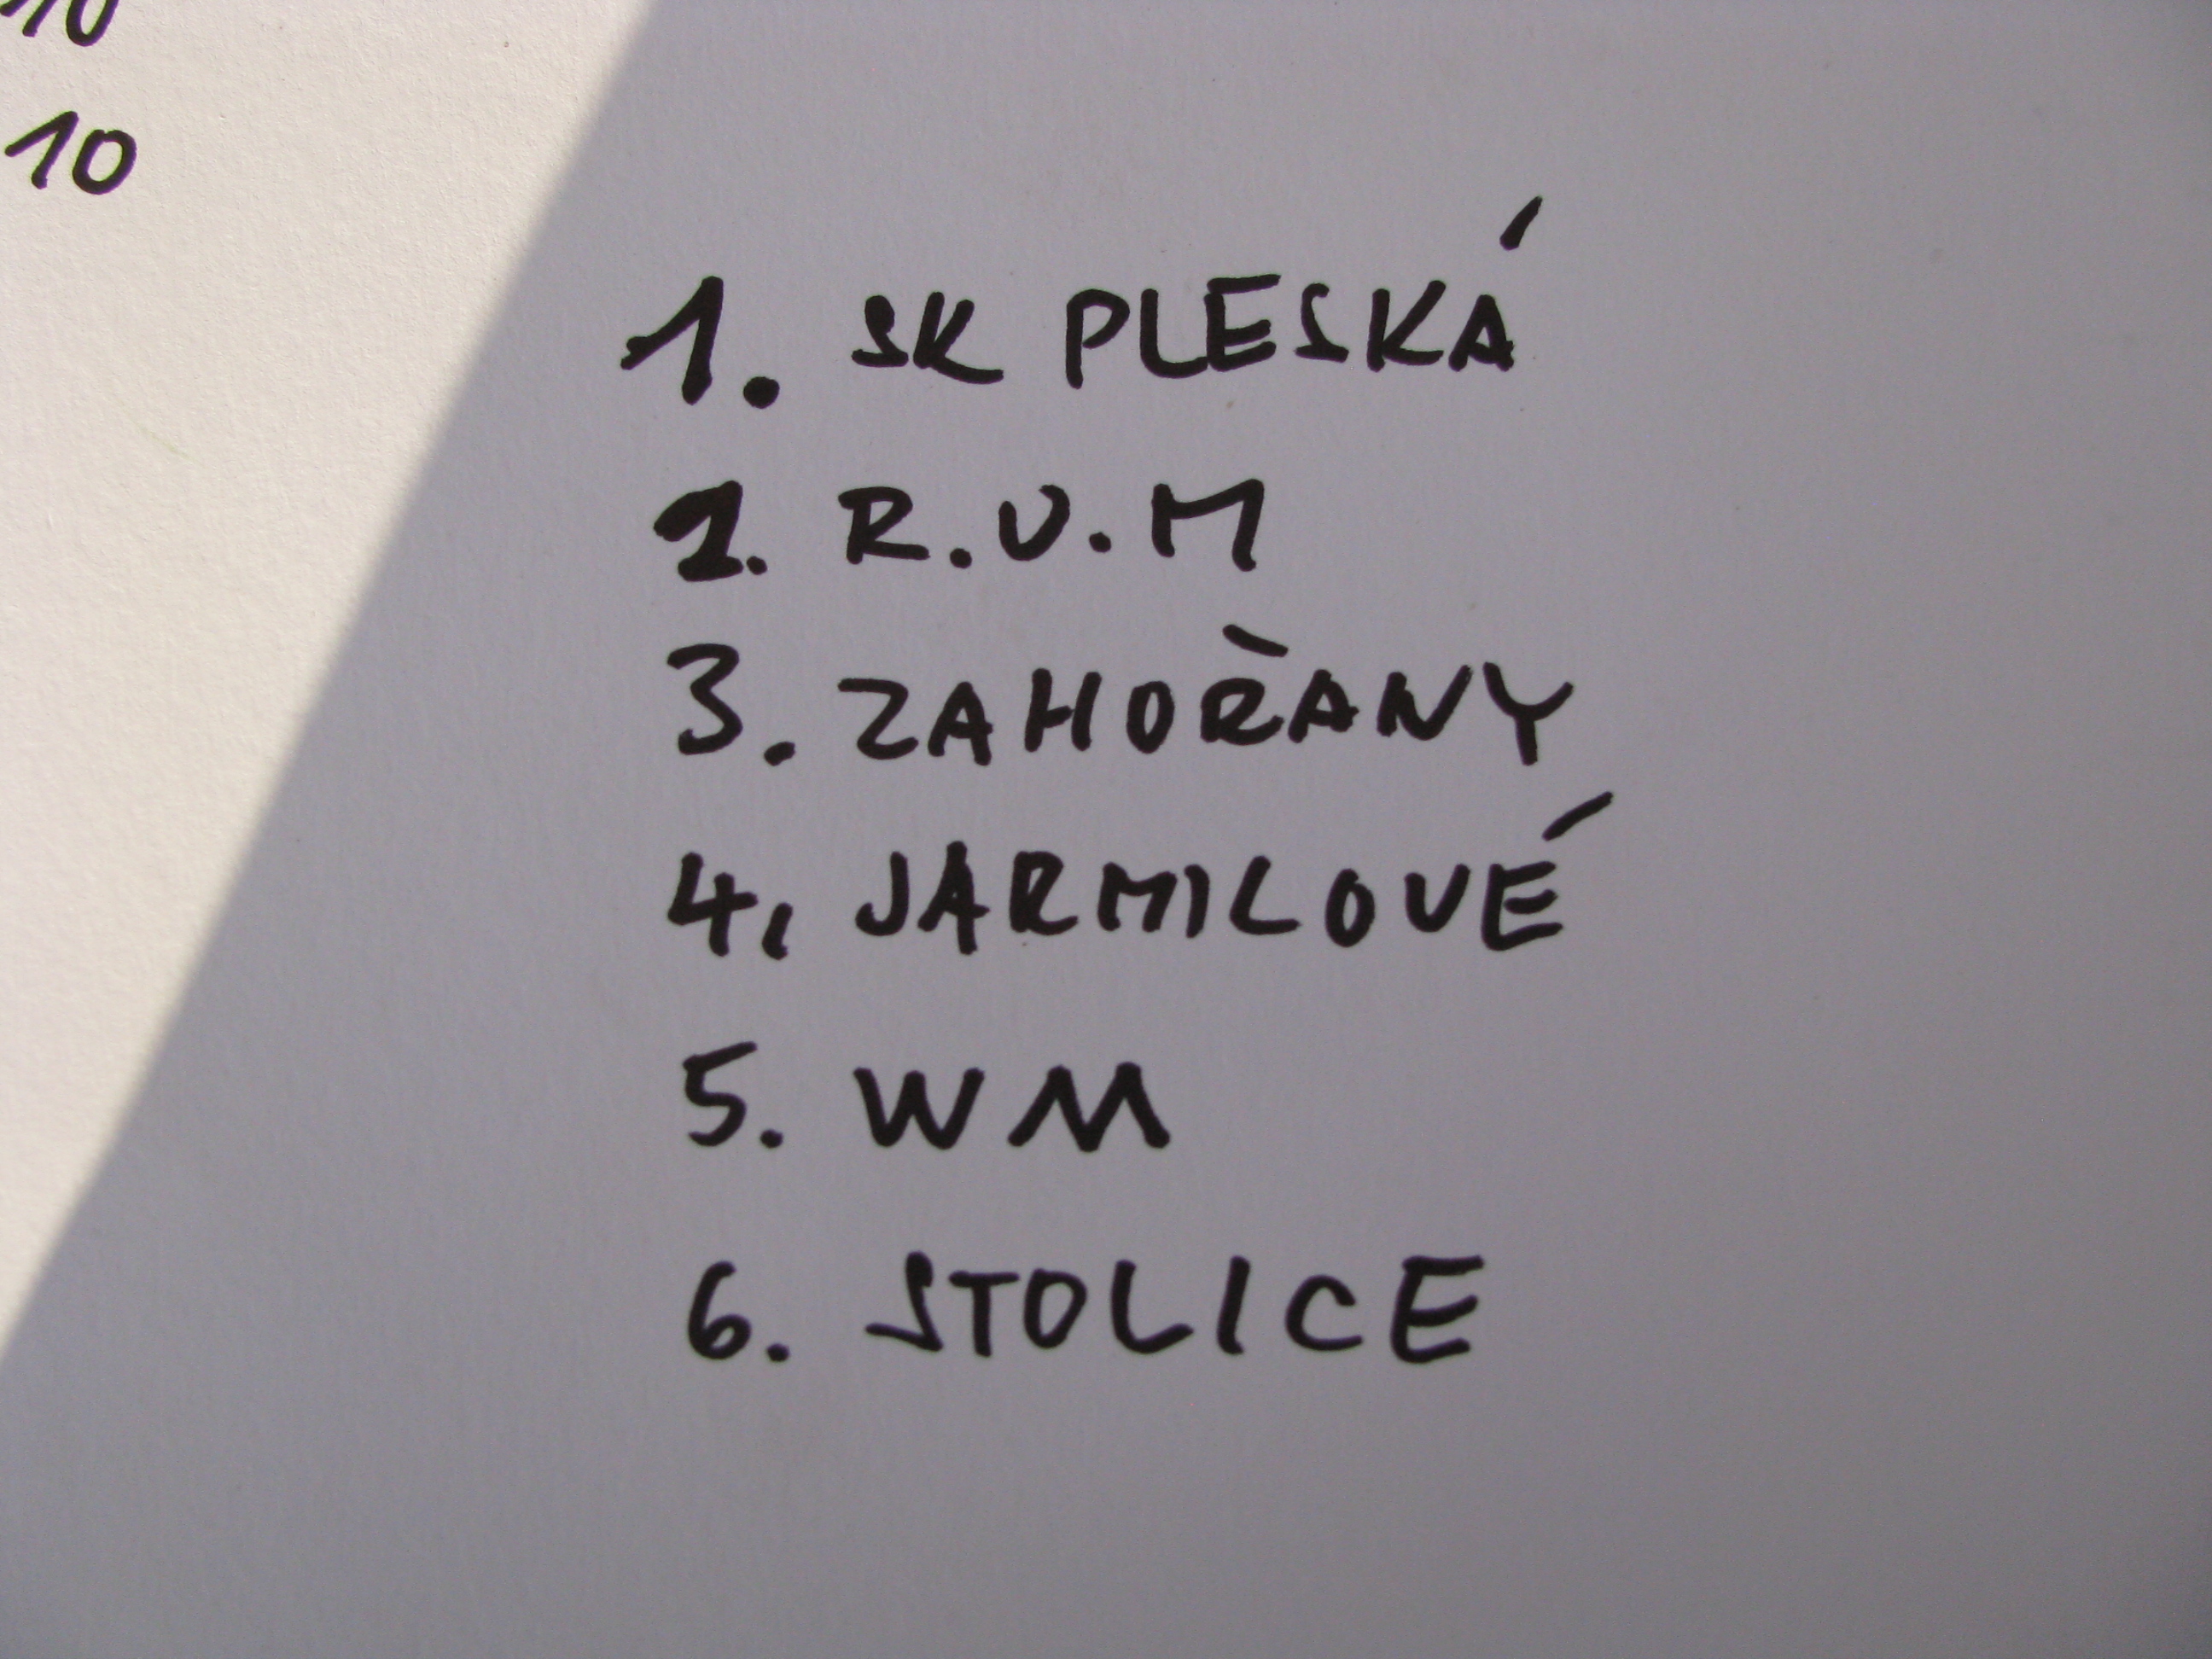 10
10
1. SK PLESKÁ
2. R.U.M
3. ZAHOŘANY
4. JARMILOVÉ
5. WM
6. STOLICE